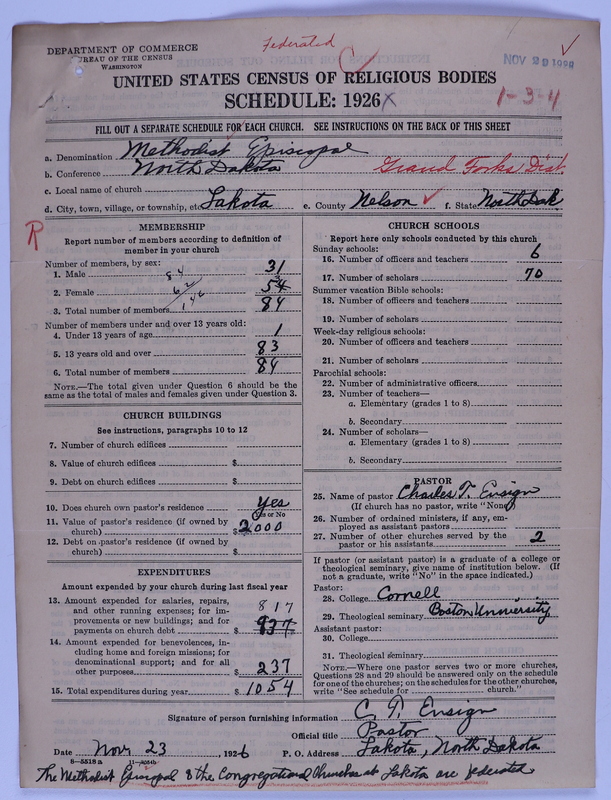 Federated
DEPARTMENT OF COMMERCE
BUREAU OF THE CENSUS
WASHINGTON
NOV 29 1926
UNITED STATES CENSUS OF RELIGIOUS BODIES
SCHEDULE: 1926
1-3-4
FILL OUT A SEPARATE SCHEDULE FOR EACH CHURCH. SEE INSTRUCTIONS ON THE BACK OF THIS SHEET
a. Denomination Methodist Episcopal
b. Conference North Dakota Grand Forks Dist.
c. Local name of church
d. City, town, village, or township, etc Lakota e. County Nelson f. State North Dak
R
MEMBERSHIP
Report number of members according to definition of
member in your church
Number of members, by sex:
1. Male 31
84
2. Female 54
62
3. Total number of members 84
146
Number of members under and over 13 years old:
4. Under 13 years of age 1
5. 13 years old and over 83
6. Total number of members 84
NOTE.—The total given under Question 6 should be the
same as the total of males and females given under Question 3.
CHURCH BUILDINGS
See instructions, paragraphs 10 to 12
7. Number of church edifices
8. Value of church edifices $
9. Debt on church edifices $
10. Does church own pastor's residence Yes
Yes or No
11. Value of pastor's residence (if owned by
church) $2000
12. Debt on pastor's residence (if owned by
church) $
EXPENDITURES
Amount expended by your church during last fiscal year
13. Amount expended for salaries, repairs,
and other running expenses; for im-
provements or new buildings; and for
payments on church debt $ 817
937
14. Amount expended for benevolences, in-
cluding home and foreign missions; for
denominational support; and for all
other purposes $ 237
15. Total expenditures during year $ 1054
CHURCH SCHOOLS
Report here only schools conducted by this church
Sunday schools:
16. Number of officers and teachers 6
17. Number of scholars 70
Summer vacation Bible schools:
18. Number of officers and teachers
19. Number of scholars
Week-day religious schools:
20. Number of officers and teachers
21. Number of scholars
Parochial schools:
22. Number of administrative officers
23. Number of teachers—
a. Elementary (grades 1 to 8)
b. Secondary
24. Number of scholars—
a. Elementary (grades 1 to 8)
b. Secondary
PASTOR
25. Name of pastor Charles T. Ensign
(If church has no pastor, write "None")
26. Number of ordained ministers, if any, em-
ployed as assistant pastors
27. Number of other churches served by the
pastor or his assistants 2
If pastor (or assistant pastor) is a graduate of a college or
theological seminary, give name of institution below. (If
not a graduate, write "No" in the space indicated.)
Pastor:
28. College Cornell
29. Theological seminary Boston University
Assistant pastor:
30. College
31. Theological seminary
NOTE.—Where one pastor serves two or more churches,
Questions 28 and 29 should be answered only on the schedule
for one of the churches; on the schedules for the other churches,
write "See schedule for church."
Signature of person furnishing information C. T. Ensign
Official title Pastor
Date Nov. 23, 1926 P. O. Address Lakota, North Dakota
8—5518 a
The Methodist Episcopal & the Congregational Churches at Lakota are federated